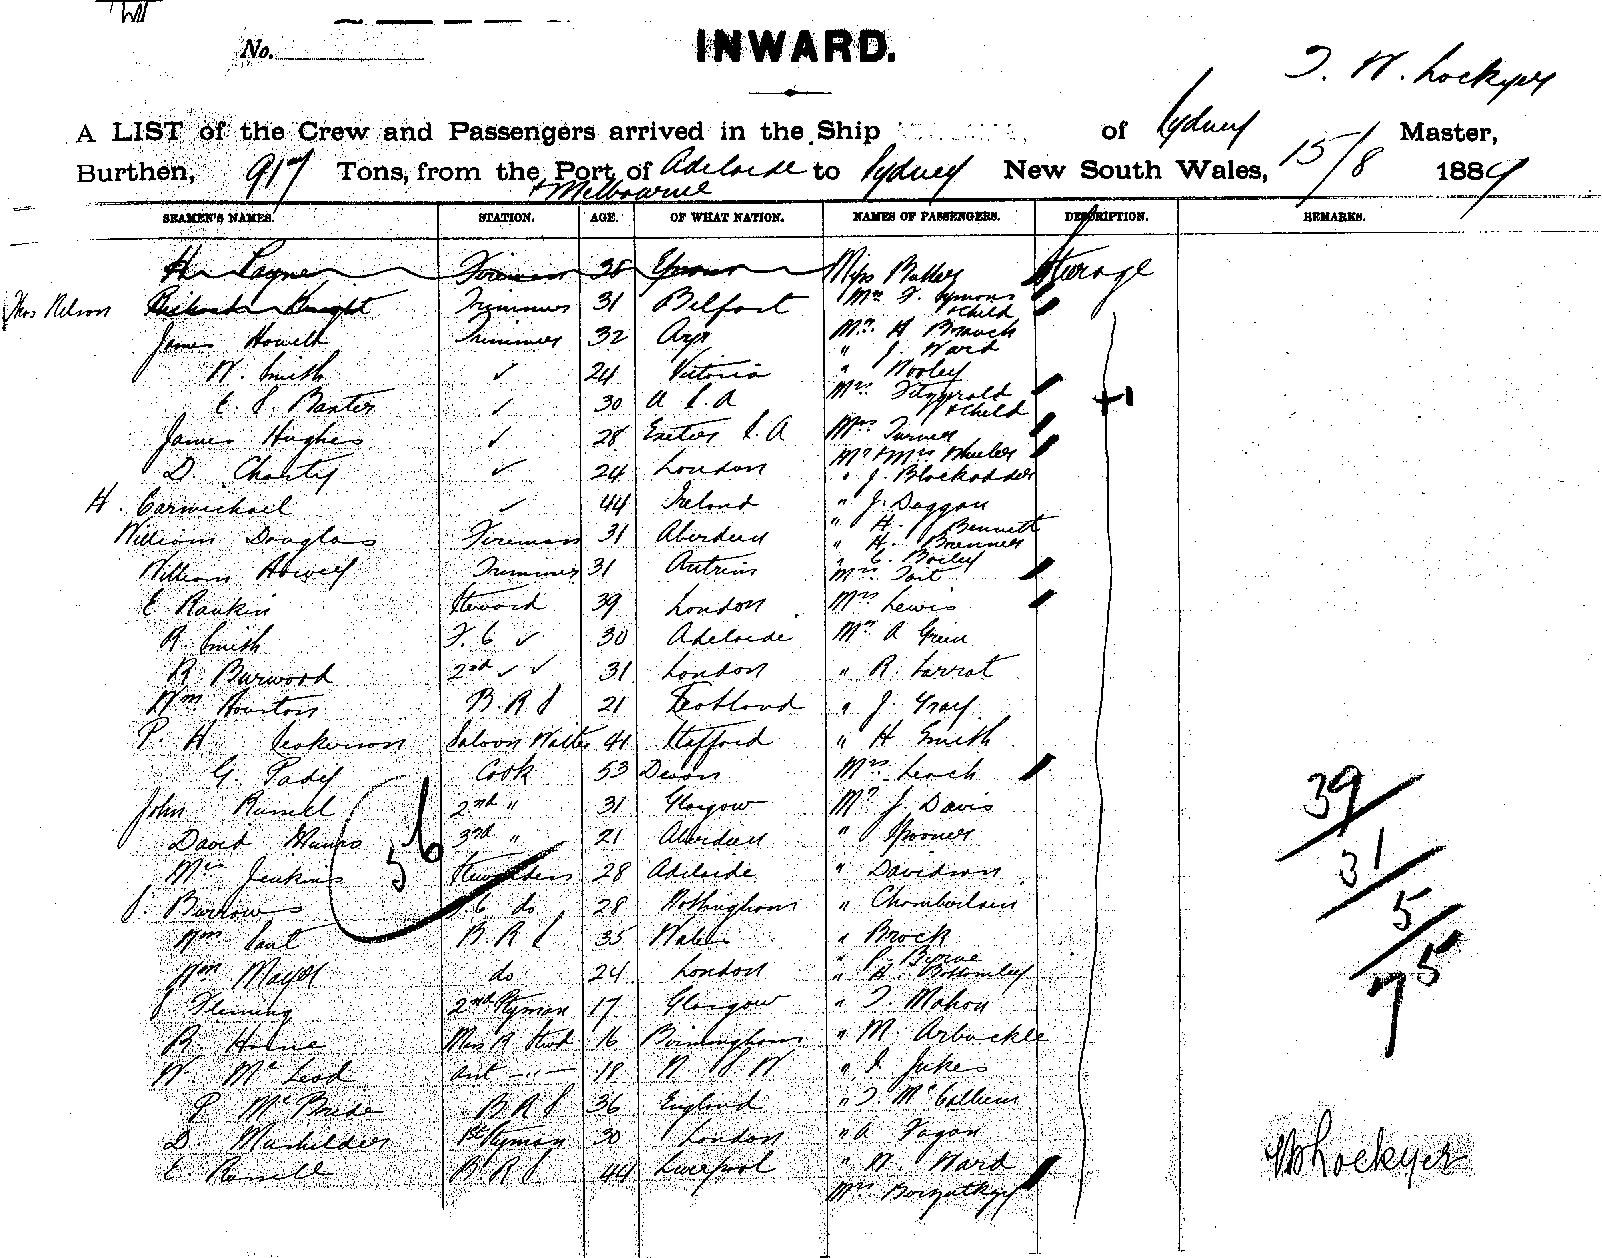 No.
INWARD.
T. W. Lockyer
A LIST of the Crew and Passengers arrived in the Ship of Sydney Master,
Burthen, 917 Tons, from the Port of Adelaide to Sydney New South Wales, 15/8 1889
+ Melbourne
SEAMEN'S NAMES. STATION. AGE. OF WHAT NATION. NAMES OF PASSENGERS. DESCRIPTION. REMARKS.
H Payne Fireman 38 Miss Butler Steerage
Thos Nelson Richard Knight Trimmer 31 Belfast Mrs F. Symons
+ Child
James Howell Trimmer 32 Ayr Mr H Branch
" J. Ward
W. Smith ✓ 24 Victoria " Wooley
C. S. Baxter ✓ 30 Mrs Fitzgerald
+ Child
James Hughes ✓ 28 Exeter S. A Mrs Turner
Mr + Mrs Wheeler
D. Charity ✓ 24 London " J. Blackadder
H. Carmichael ✓ 44 Ireland " J. Duggan
" H. Bennett
William Douglas Fireman 31 Aberdeen " H. Brenner
" C. Bailey
William Howell Trimmer 31 Antrim Mrs Tait
E Rankin Steward 39 London Mrs Lewis
R. Smith F. C ✓ 30 Adelaide Mr A Green
R Burwood 2nd ✓ ✓ 31 London " R. Larrat
Wm Houston B. R S 21 Scotland " J. Gray
P. H Saloon Waiter 41 Stafford " H Smith
G. Pady Cook 53 Devon Mrs Leach
John Russell 2nd " 31 Glasgow Mr J. Davis
David Munro 3rd " 21 Aberdeen " Spooner
Mrs Jenkins Stewardess 28 Adelaide " Davidson
J. Burrows F C do 28 Nottingham " Chamberlain
Wm B. R S 35 Wales " Brock
" P. Byrne
Wm Mayer do 24 London " H. Bottomley
J Fleming 2nd Pyman 17 Glasgow " T. Mahon
R. Horne Mess R Stwd 16 Birmingham " M. Arbuckle
W. McLeod 18 N S W " J. Jukes
P McBride B R S 36 England " T. McCallum
D. 1st Pyman 30 London " A Fagan
C Russell B R S 44 Liverpool " W. Ward
Mrs
56
39
31
5
75
Lockyer